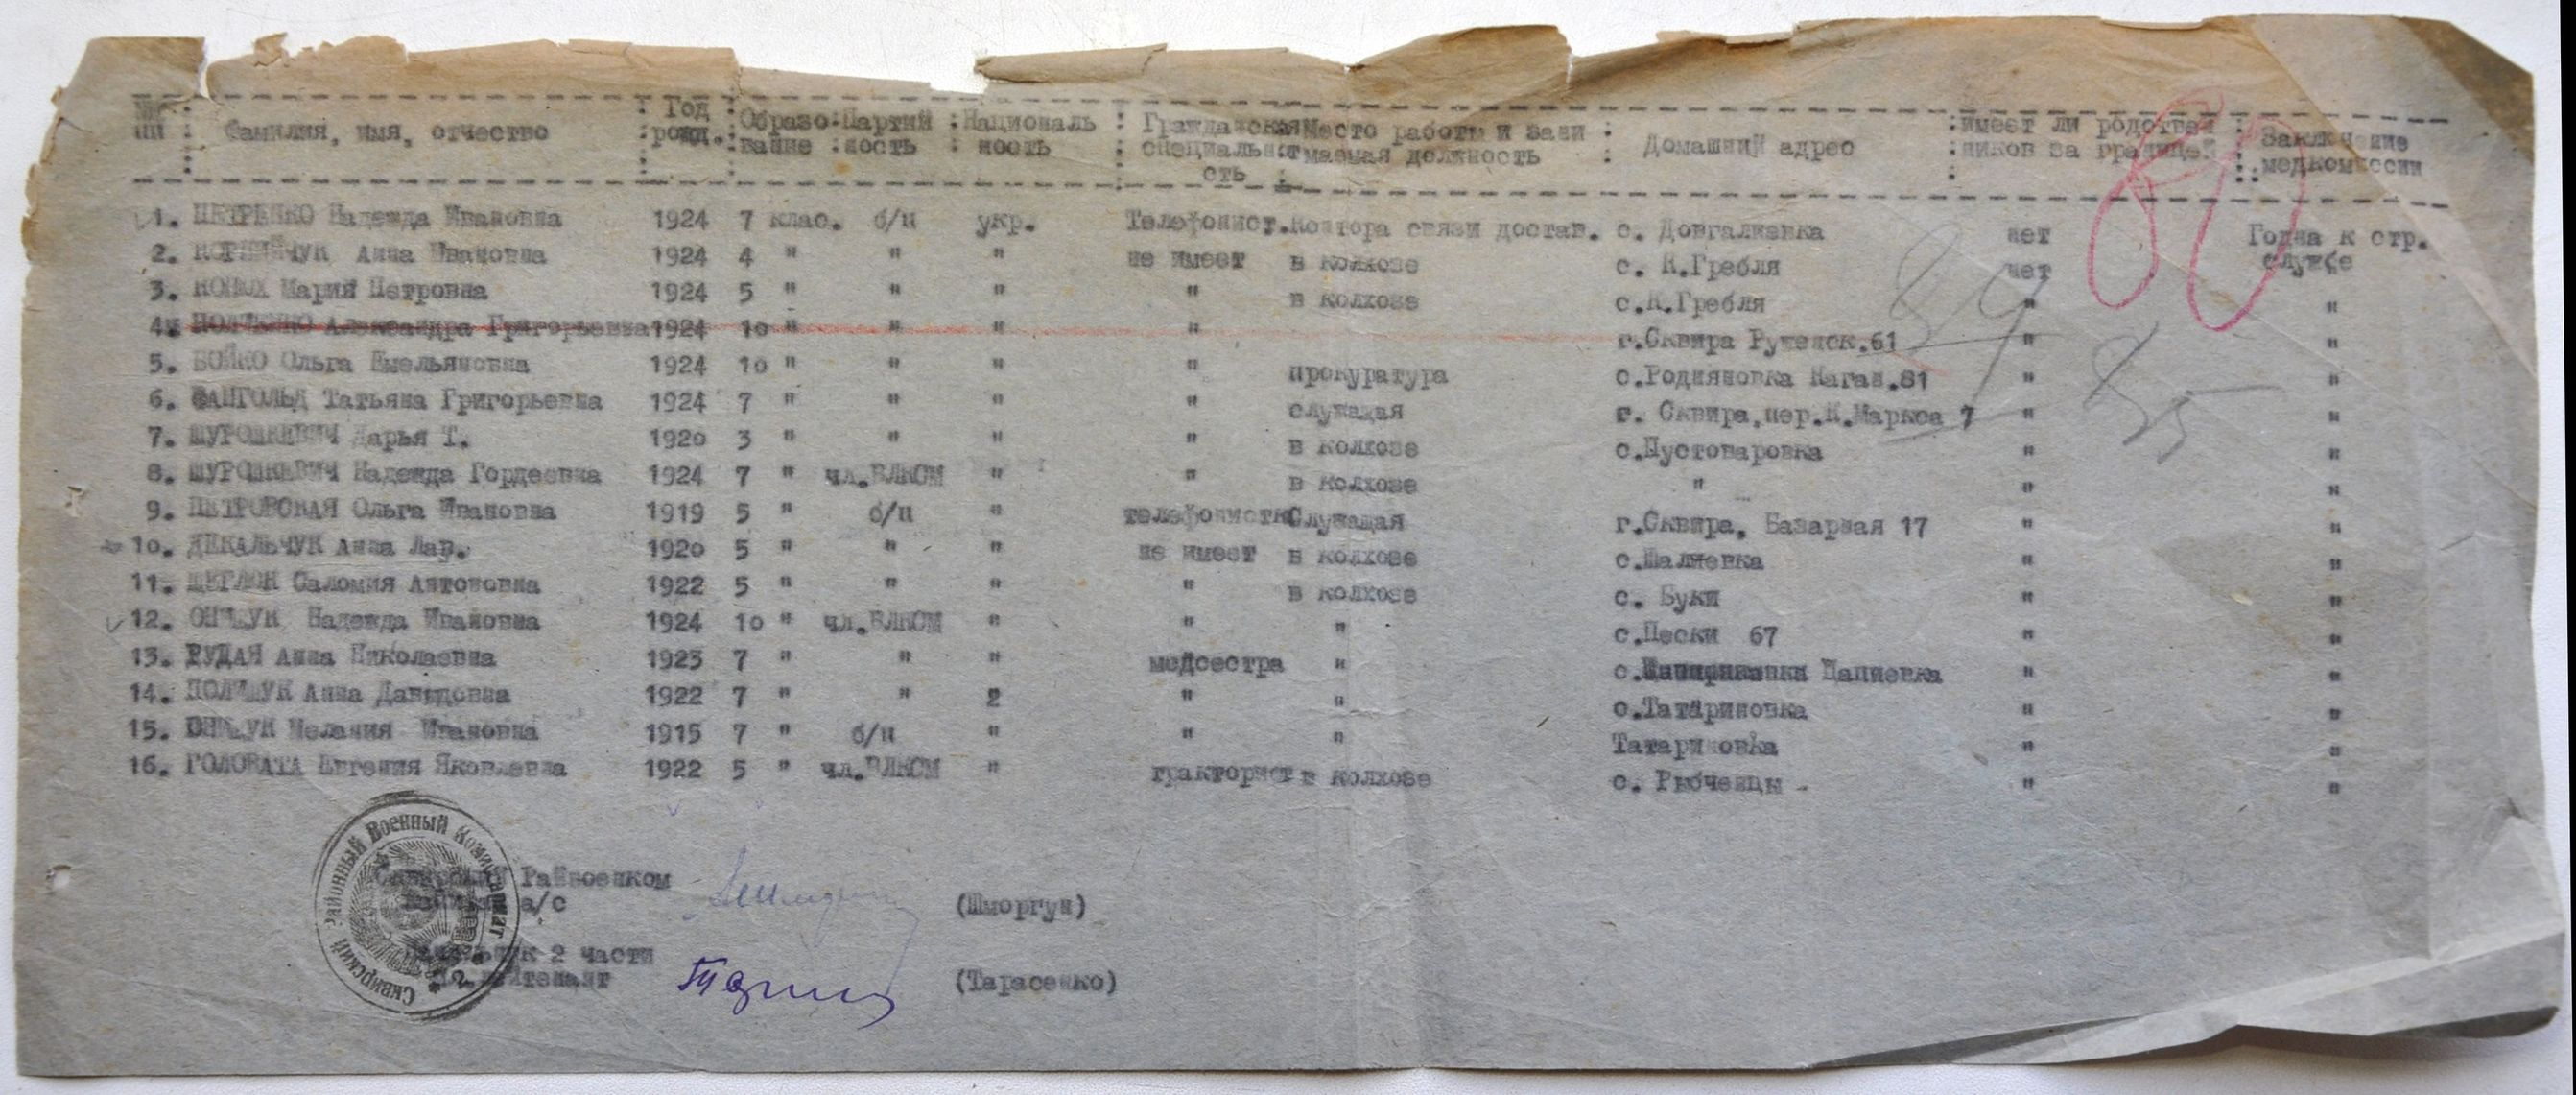 №№ пп : Фамилия, имя, отчество : Год рожд. : Образо вание : Партий ность : Националь ность : Гражданская специальность : Место работы и зани маемая должность : Домашний адрес : имеет ли родствен ников за границей : Заключение медкомиссии
1. ПЕТРЕНКО Надежда Ивановна 1924 7 клас. б/п укр. Телефонист. Контора связи достав. с. Довгалиевка нет Годна к стр. службе
2. КОРНИЙЧУК Анна Ивановна 1924 4 " " " не имеет в колхозе с. К.Гребля нет
3. Мария Петровна 1924 5 " " " " в колхозе с.К.Гребля " "
4. Александра Григорьевна 1924 10 " " " " г.Сквира Ружинск.61 " "
5. БОЙКО Ольга Емельяновна 1924 10 " " " " прокуратура с.Родняновка Каган.81 " "
6. ФАНГОЛЬД Татьяна Григорьевна 1924 7 " " " " служащая г. Сквира,пер.К.Маркса 7 " "
7. ШУРОЦКЕВИЧ Дарья Т. 1920 3 " " " " в колхозе с.Пустоваровка " "
8. ШУРОЦКЕВИЧ Надежда Гордеевна 1924 7 " чл.ВЛКСМ " " в колхозе " " "
9. ПЕТРОВСКАЯ Ольга Ивановна 1919 5 " б/п " телефонистка Служащая г.Сквира, Базарная 17 " "
10. ДЕКАЛЬЧУК Анна Лав. 1920 5 " " " не имеет в колхозе с.Шалиевка " "
11. ЩЕГЛЮК Саломия Антоновна 1922 5 " " " " в колхозе с. Буки " "
12. ОНИЩУК Надежда Ивановна 1924 10 " чл.ВЛКСМ " " " с.Пески 67 " "
13. РУДАЯ Анна Николаевна 1923 7 " " " медсестра " с. Цапиевка " "
14. ПОЛИЩУК Анна Давыдовна 1922 7 " " 2 " " с.Татариновка " "
15. ОНИЩУК Мелания Ивановна 1915 7 " б/п " " " Татариновка " "
16. ГОЛОВАТА Евгения Яковлевна 1922 5 " чл.ВЛКСМ " тракторист в колхозе с. Рыбченцы " "
84
85
Сквирский Районный Военный Комиссариат
Сквирский Райвоенком
а/с (Шморгун)
Начальник 2 части
лейтенант (Тарасенко)